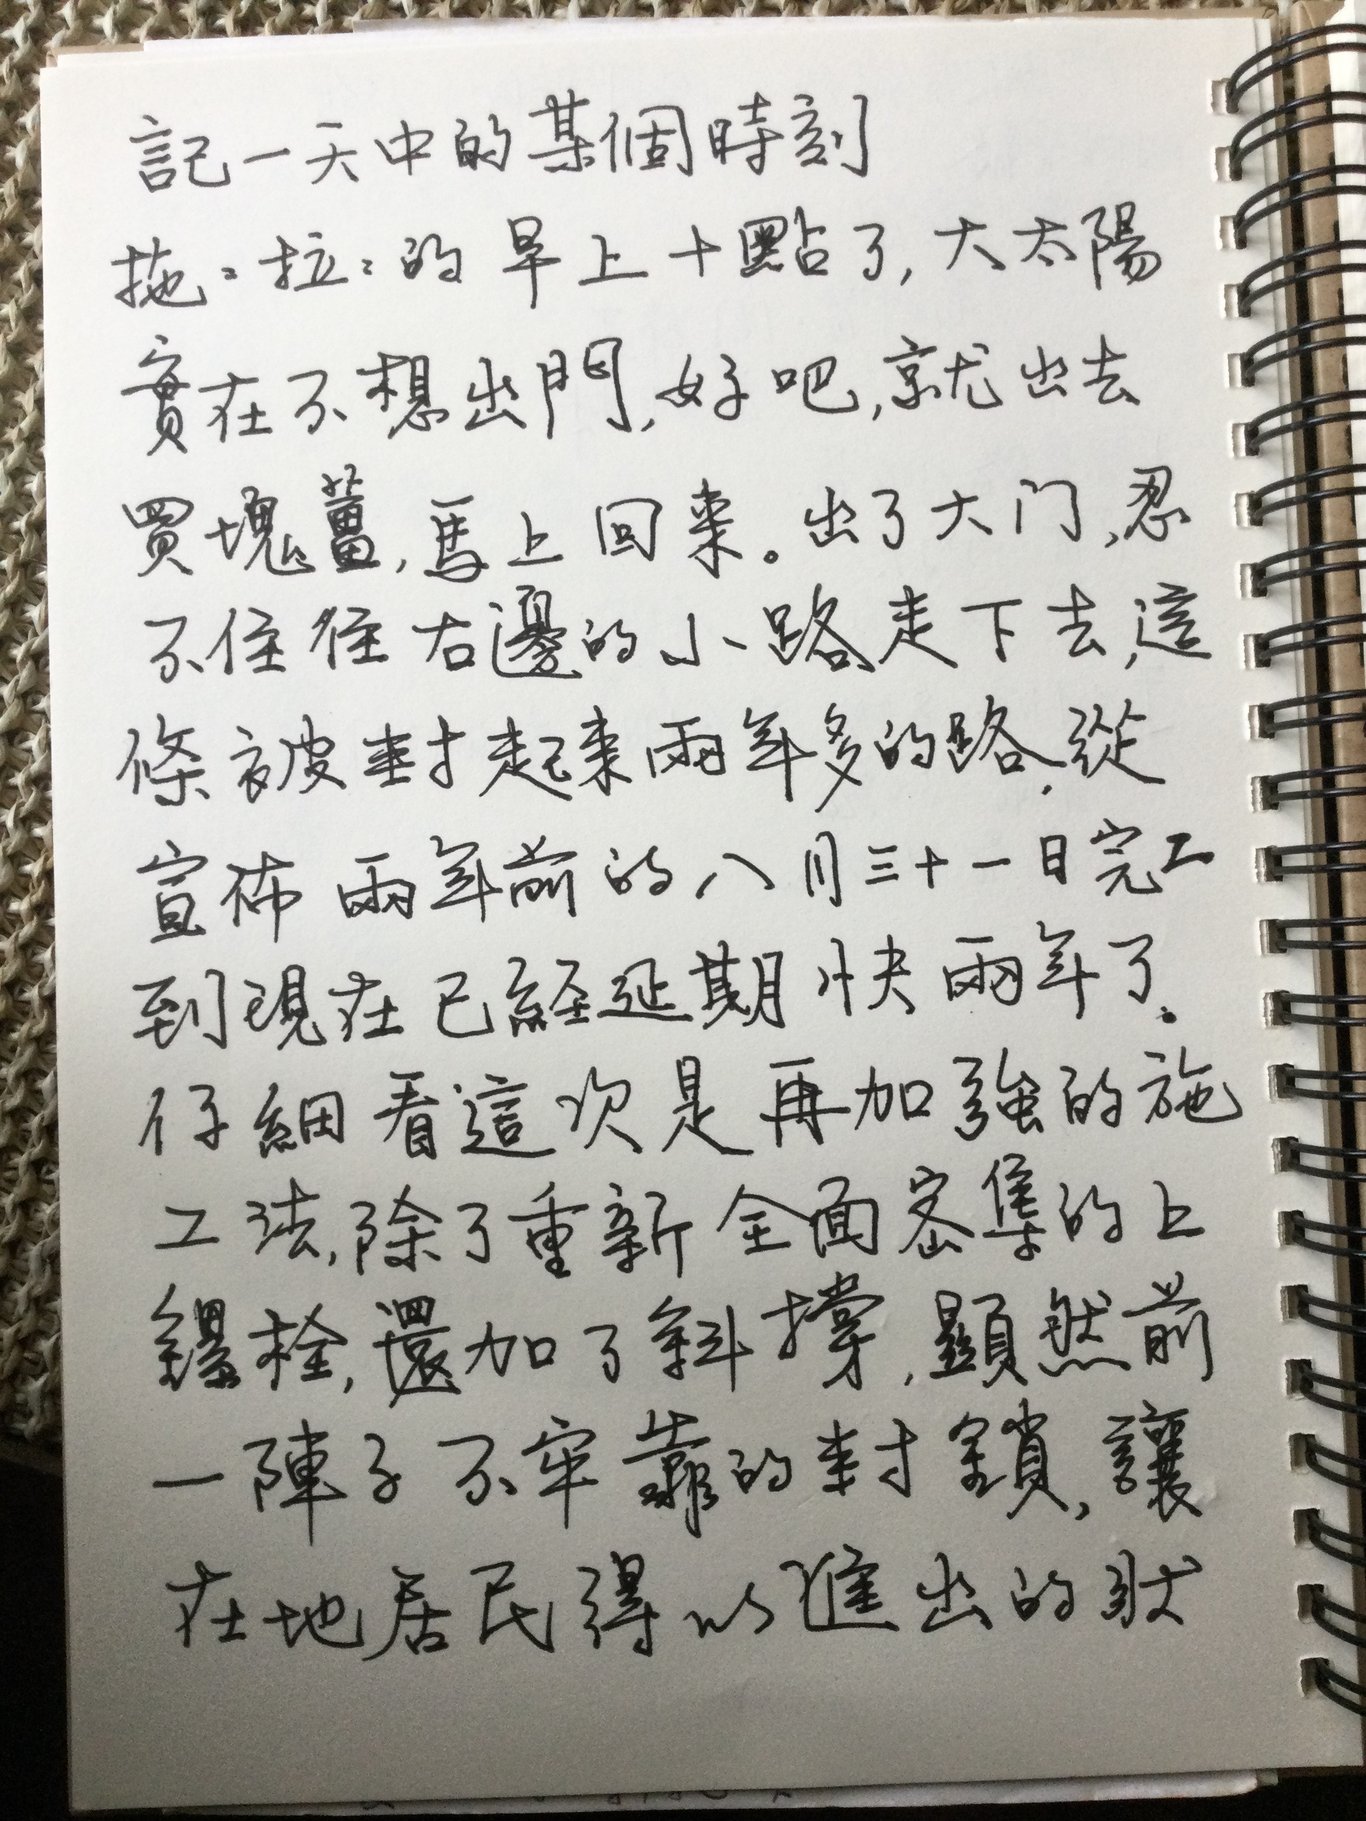 記一天中的某個時刻
拖:拉:的早上十點了,大太陽
實在不想出門,好吧,就出去
買塊薑,馬上回來。出了大门,忍
不住往右邊的小路走下去,這
條被封起來兩年多的路,從
宣佈兩年前的八月三十一日完工
到現在已經延期快兩年了。
仔細看這次是再加強的施
工法,除了重新全面密集的上
螺栓,還加了斜撐,顯然前
一陣子不牢靠的封鎖,讓
在地居民得以進出的狀